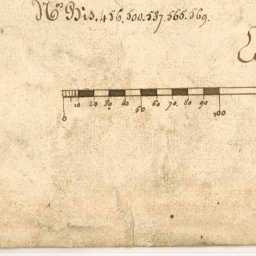 No Bis. 456. 500. 537. 565. 569.
10 20 30 40 50 60 70 80 90 100
0